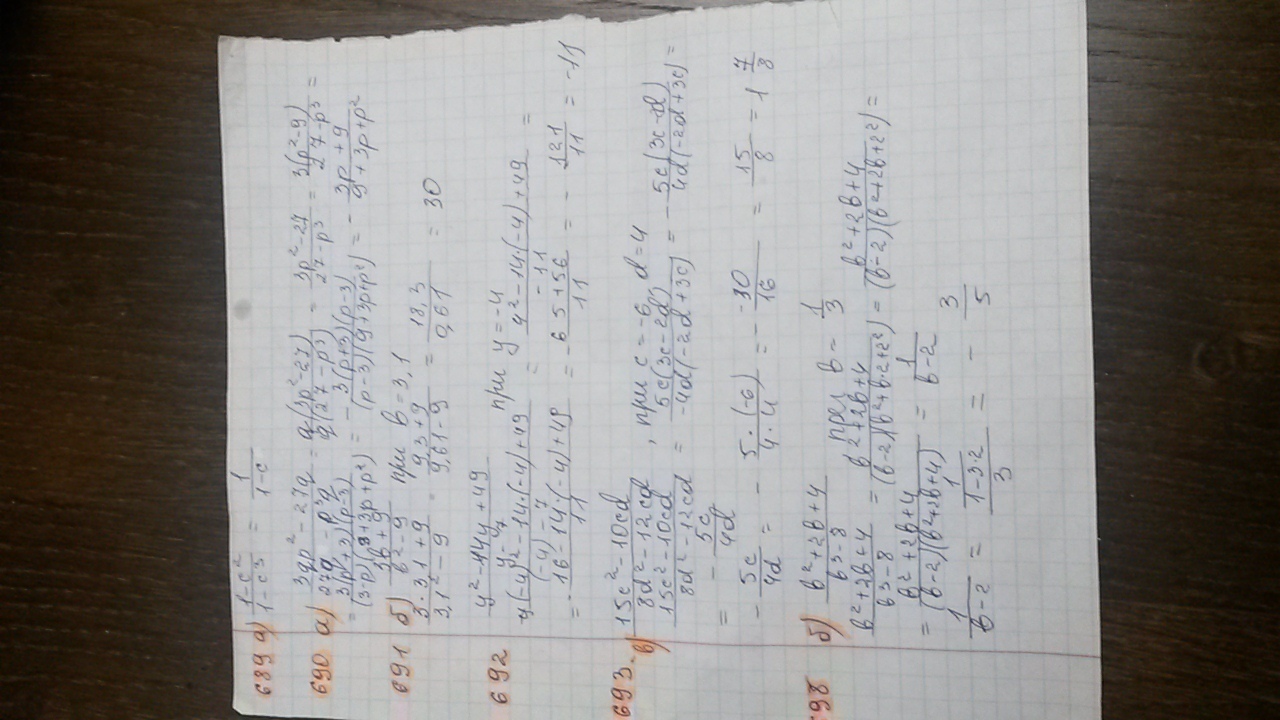 689 а) (1-c²)/(1-c³) = 1/(1-c)
690 а) (3qp²-27q)/(27q-p³q) = q(3p²-27)/q(27-p³) = (3p²-27)/(27-p³) = 3(p²-9)/(27-p³) =
= 3(p+3)(p-3)/(3-p)(9+3p+p²) = -3(p+3)(p-3)/(p-3)(9+3p+p²) = -(3p+9)/(9+3p+p²)
691 б) (3b+9)/(b²-9) при b=3,1
(3·3,1+9)/(3,1²-9) = (9,3+9)/(9,61-9) = 18,3/0,61 = 30
692 (y²-14y+49)/(y-7) при y=-4
(4²-14·(-4)+49)/(-11) =
= -(16-14·(-4)+49)/11 = -(65+56)/11 = -121/11 = -11
693. в) (15c²-10cd)/(8d²-12cd), при c=-6, d=4
(15c²-10cd)/(8d²-12cd) = 5c(3c-2d)/-4d(-2d+3c) = -5c(3c-2d)/4d(-2d+3c) =
= -5c/4d
-5c/4d = -5·(-6)/4·4 = -(-30)/16 = 15/8 = 1 7/8
698 б) (b²+2b+4)/(b³-8) при b=1/3
(b²+2b+4)/(b³-8) = (b²+2b+4)/(b-2)(b²+b·2+2²) = (b²+2b+4)/(b-2)(b²+2b+2²) =
= (b²+2b+4)/(b-2)(b²+2b+4) = 1/(b-2)
1/(b-2) = 1/((1-3·2)/3) = -3/5